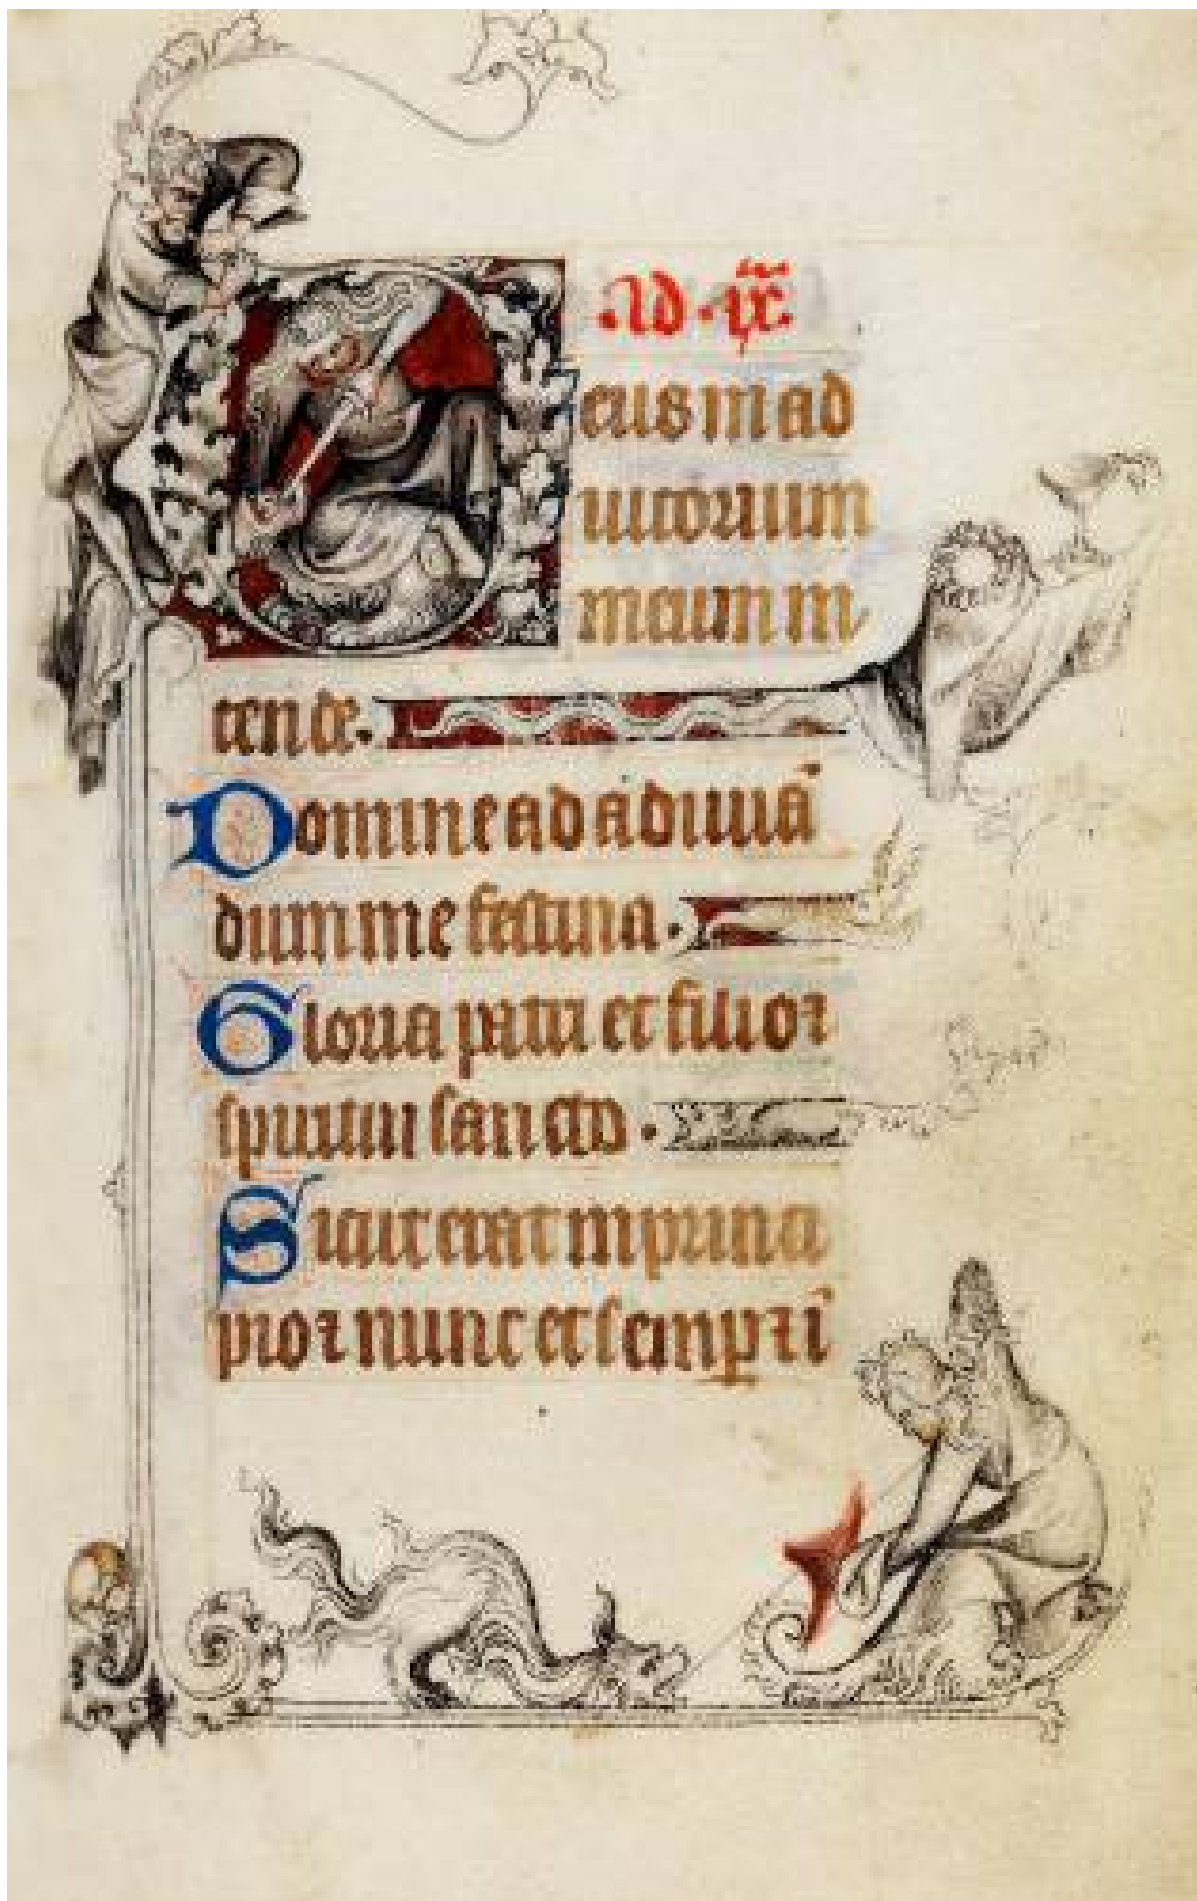 .Ad.ixᵃᵐ.
Deus in ad
iutorium
meum in
tende.
Domine ad adiuuā
dum me festina.
Gloria patri et filio ⁊
spiritui sancto.
Sicut erat in princi
pio ⁊ nunc et semꝑ ⁊ ī